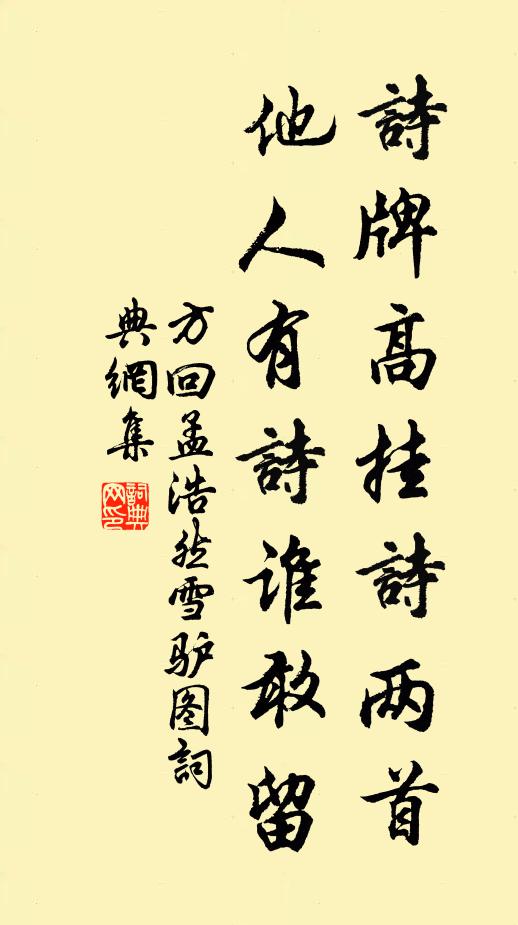 詩牌高挂詩两首
他人有詩谁敢留
方回孟浩然雪驴图詞
典網集
詞典
网印